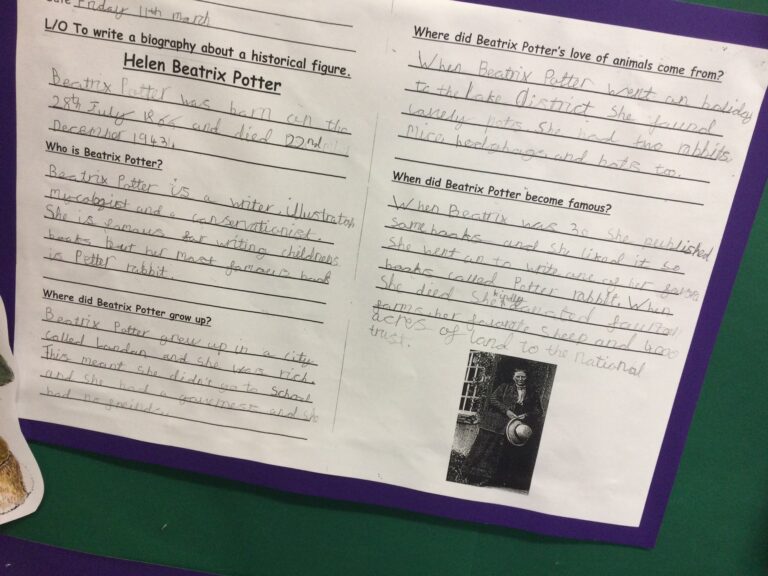 Friday 11th march
L/O To write a biography about a historical figure.
Helen Beatrix Potter
Beatrix Potter was born on the
28th July 1866 and died 22nd
December 1943.
Who is Beatrix Potter?
Beatrix Potter is a writer, illustrator
mycologist and a conservationist.
She is famous for writing childrens
books but her most famous book
is Petter rabbit.
Where did Beatrix Potter grow up?
Beatrix Potter grew up in a city
called London and she was rich.
This meant she didn't go to School
and she had a governest and she
had no
Where did Beatrix Potter's love of animals come from?
When Beatrix Potter went on holiday
to the lake district she found
lovely pets. She had two rabbits,
mice, hedgehogs and bats too.
When did Beatrix Potter become famous?
When Beatrix was 30 she published
some books and she liked it so
she went on to write one of her
books called Potter rabbit. When
She died She kindly donated
farms her sheep and 4000
acres of land to the national
trust.